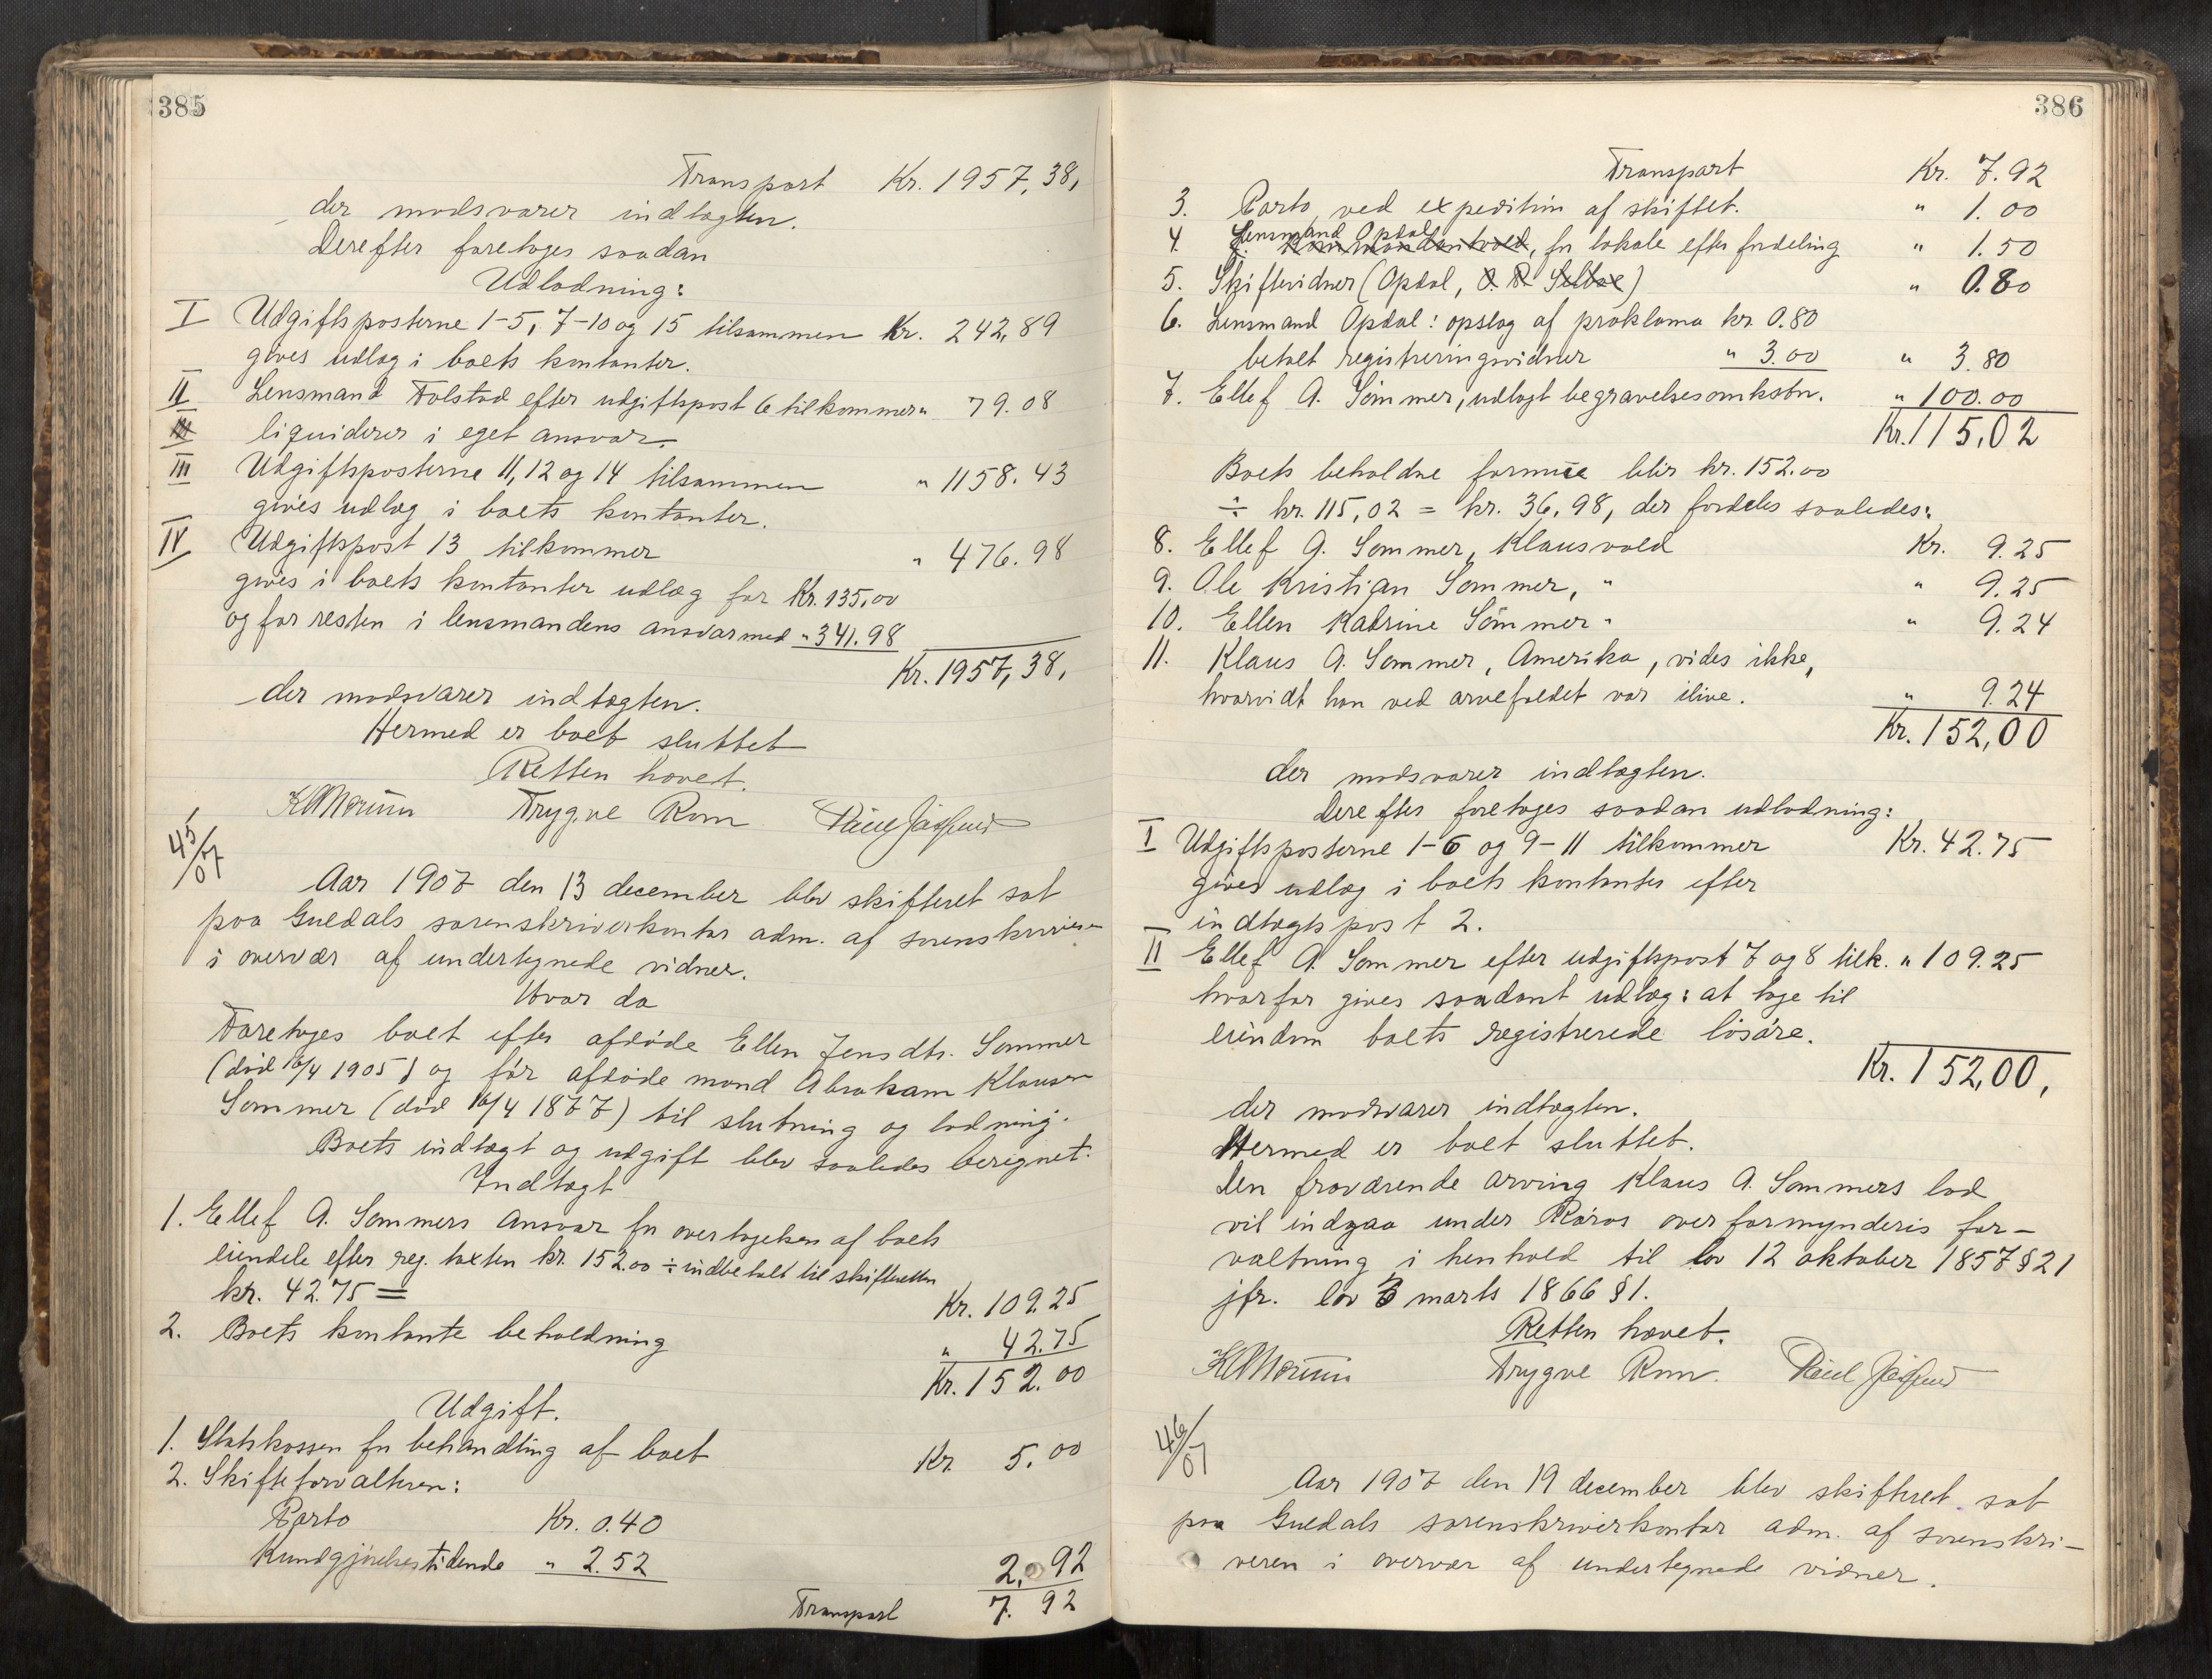 385
Transport Kr. 1957,38,
der modsvarer indtægten.
Derefter foretoges saadan
Udlodning:
I Udgiftsposterne 1-5, 7-10 og 15 tilsammen Kr. 242,89
gives udlæg i boets kontanter.
II Lensmand Tolstad efter udgiftspost 6 tilkommer " 79.08
III liquiderer i eget ansvar.
III Udgiftsposterne 11, 12 og 14 tilsammen " 1158.43
gives udlæg i boets kontanter.
IV Udgiftspost 13 tilkommer " 476.98
gives i boets kontanter udlæg for Kr. 135,00
og for resten i lensmandens ansvar med " 341.98
Kr. 1957,38,
der modsvarer indtægten.
Hermed er boet sluttet
Retten hævet.
Trygve Rom
45/07
Aar 1907 den 13 december blev skifteret sat
paa Guldals sorenskriverkontor adm. af sorenskriveren
i overvær af undertegnede vidner.
Hvor da
Foretoges boet efter afdøde Ellen Jensdtr. Sommer
(død 16/4 1905) og før afdøde mand Abraham Klausen
Sommer (død 16/4 1877) til slutning og lodning.
Boets indtægt og udgift blev saaledes beregnet:
Indtægt
1. Ellef A. Sommers ansvar for overtagelsen af boets
eiendele efter reg. taxten kr. 152.00 ÷ indbetalt til skifteretten
kr. 42.75 = Kr. 109.25
2. Boets kontante beholdning " 42.75
Kr. 152.00
Udgift.
1. Statskassen for behandling af boet Kr. 5.00
2. Skifteforvalteren:
Porto Kr. 0.40
Kundgjørelsestidende " 2.52 2.92
Transport 7.92
386
Transport Kr. 7.92
3. Porto ved expedition af skiftet. " 1.00
Lensmand Opdal
4. for lokale efter fordeling " 1.50
5. Skiftevidner (Opdal, O. R. Selboe) " 0.80
6. Lensmand Opdal: opslag af proklama kr. 0.80
betalt registreringsvidner " 3.00 " 3.80
7. Ellef A. Sommer, udlagt begravelsesomkostn. " 100.00
Kr. 115,02
Boets beholdne formue blir kr. 152.00
÷ kr. 115,02 = kr. 36,98, der fordeles saaledes:
8. Ellef A. Sommer, Klausvold Kr. 9.25
9. Ole Kristian Sommer, " " 9.25
10. Ellen Katrine Sommer " " 9.24
11. Klaus A. Sommer, Amerika, vides ikke,
hvorvidt han ved arvefaldet var ilive. " 9.24
Kr. 152,00
der modsvarer indtægten.
Derefter foretoges saadan udlodning:
I Udgiftsposterne 1-6 og 9-11 tilkommer Kr. 42.75
gives udlæg i boets kontanter efter
indtægtspost 2.
II Ellef A. Sommer efter udgiftspost 7 og 8 tilk. " 109.25
hvorfor gives saadant udlæg: at tage til
eiendom boets registrerede løsøre.
Kr. 152,00,
der modsvarer indtægten.
Hermed er boet sluttet.
Den fraværende arving Klaus A. Sommers lod
vil indgaa under Røros overformynderis for-
valtning i henhold til lov 12 oktober 1857 § 21
jfr. lov 3 marts 1866 § 1.
Retten hævet.
Trygve Rom.
46/07
Aar 1907 den 19 december blev skifteret sat
paa Guldals sorenskriverkontor adm. af sorenskri-
veren i overvær af undertegnede vidner.